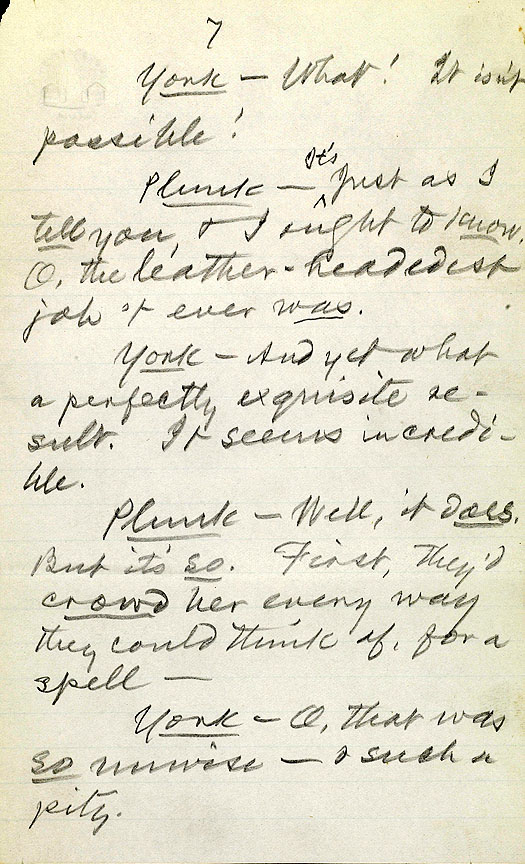 7
York — What! It isn't
possible!
It's
Plunk — Just as I
tell you, & I ought to know.
O, the leather-headedest
job 't ever was.
York — And yet what
a perfectly exquisite re-
sult. It seems incredi-
ble.
Plunk — Well, it does.
But it's so. First, they'd
crowd her every way
they could think of, for a
spell —
York — O, that was
so unwise — & such a
pity.